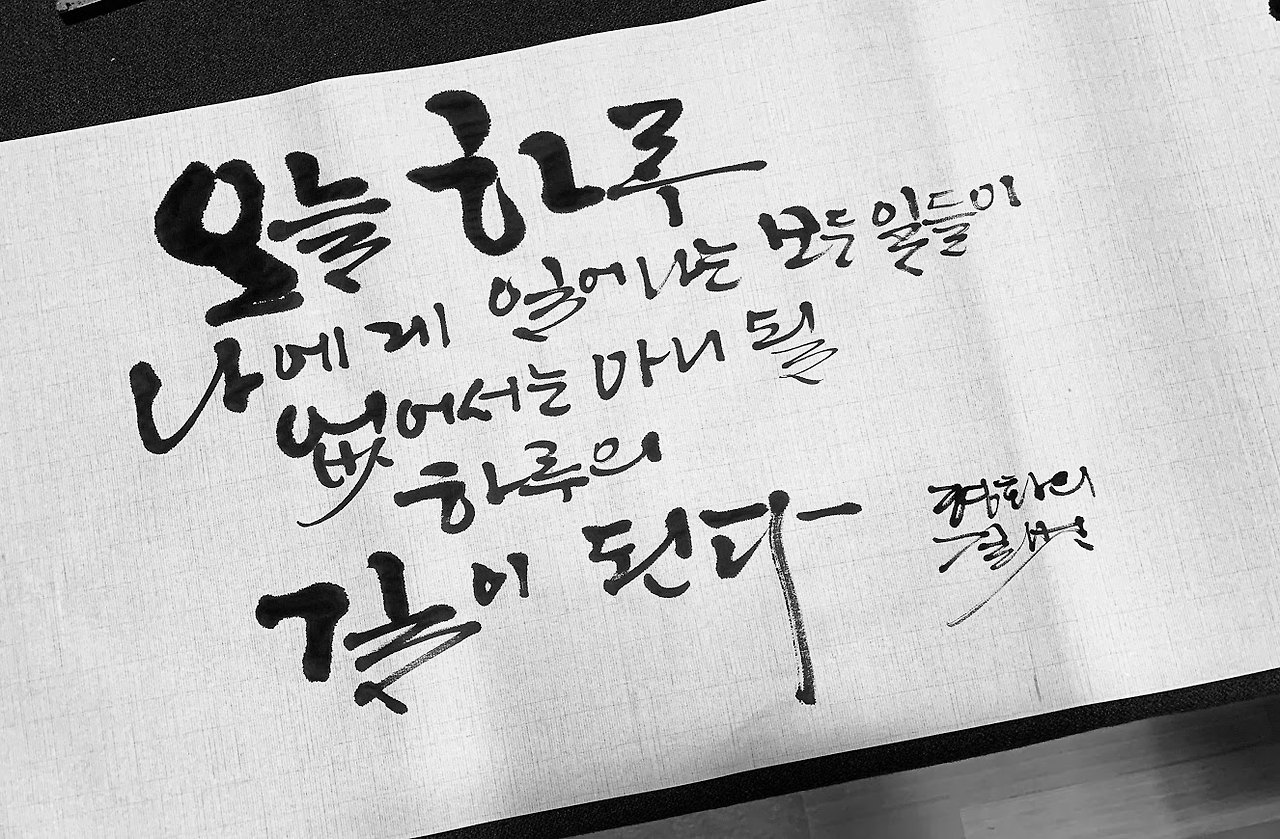 오늘 하루
나에게 일어나는 모든 일들이
없어서는 아니 될
하루의
길이 된다
평화의
길벗